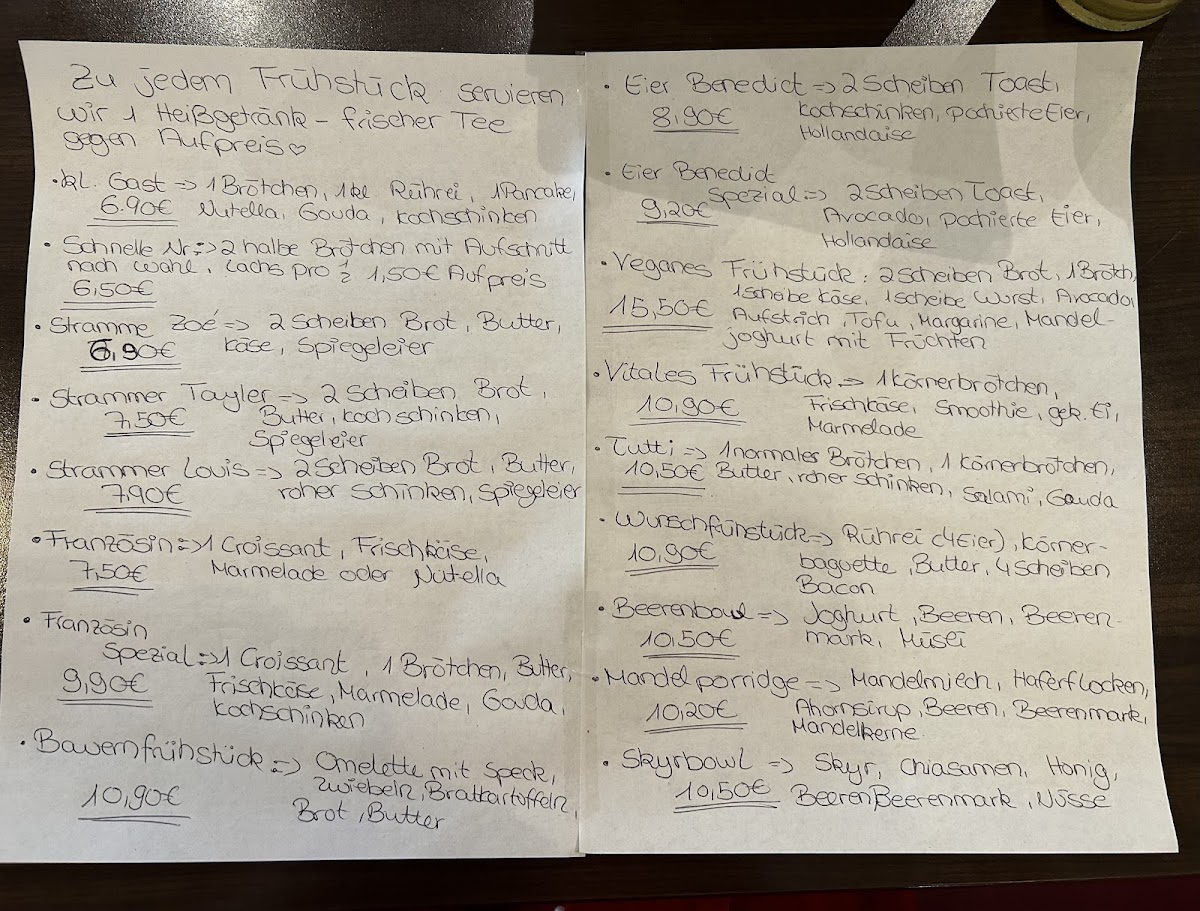 Zu jedem Frühstück servieren
wir 1 Heißgetränk - frischer Tee
gegen Aufpreis♡
• kl. Gast => 1 Brötchen, 1 kl Rührei, 1 Pancake,
6.90€ Nutella, Gouda, Kochschinken
• Schnelle Nr. => 2 halbe Brötchen mit Aufschnitt
nach Wahl, Lachs pro ½ 1,50€ Aufpreis
6,50€
• Stramme Zoé => 2 Scheiben Brot, Butter,
6,90€ Käse, Spiegeleier
• Strammer Tayler => 2 Scheiben Brot,
7,50€ Butter, Kochschinken,
Spiegeleier
• Strammer Louis => 2 Scheiben Brot, Butter,
7,90€ roher Schinken, Spiegeleier
• Französin => 1 Croissant, Frischkäse,
7,50€ Marmelade oder Nutella
• Französin
Spezial => 1 Croissant, 1 Brötchen, Butter,
9,90€ Frischkäse, Marmelade, Gouda,
Kochschinken
• Bauernfrühstück => Omelette mit Speck,
10,90€ Zwiebeln, Bratkartoffeln,
Brot, Butter
• Eier Benedict => 2 Scheiben Toast,
8,90€ Kochschinken, pochierte Eier,
Hollandaise
• Eier Benedict
Spezial => 2 Scheiben Toast,
9,20€ Avocado, pochierte Eier,
Hollandaise
• Veganes Frühstück: 2 Scheiben Brot, 1 Brötch,
1 Scheibe Käse, 1 Scheibe Wurst, Avocado,
15,50€ Aufstrich, Tofu, Margarine, Mandel-
joghurt mit Früchten
• Vitales Frühstück => 1 Körnerbrötchen,
10,90€ Frischkäse, Smoothie, gek. Ei,
Marmelade
• Tutti => 1 normales Brötchen, 1 Körnerbrötchen,
10,50€ Butter, roher Schinken, Salami, Gouda
• Wunschfühstück => Rührei (4 Eier), Körner-
10,90€ baguette, Butter, 4 Scheiben
Bacon
• Beerenbowl => Joghurt, Beeren, Beeren-
10,50€ mark, Müsli
• Mandelporridge => Mandelmilch, Haferflocken,
10,20€ Ahornsirup, Beeren, Beerenmark,
Mandelkerne
• Skyrbowl => Skyr, Chiasamen, Honig,
10,50€ Beeren, Beerenmark, Nüsse